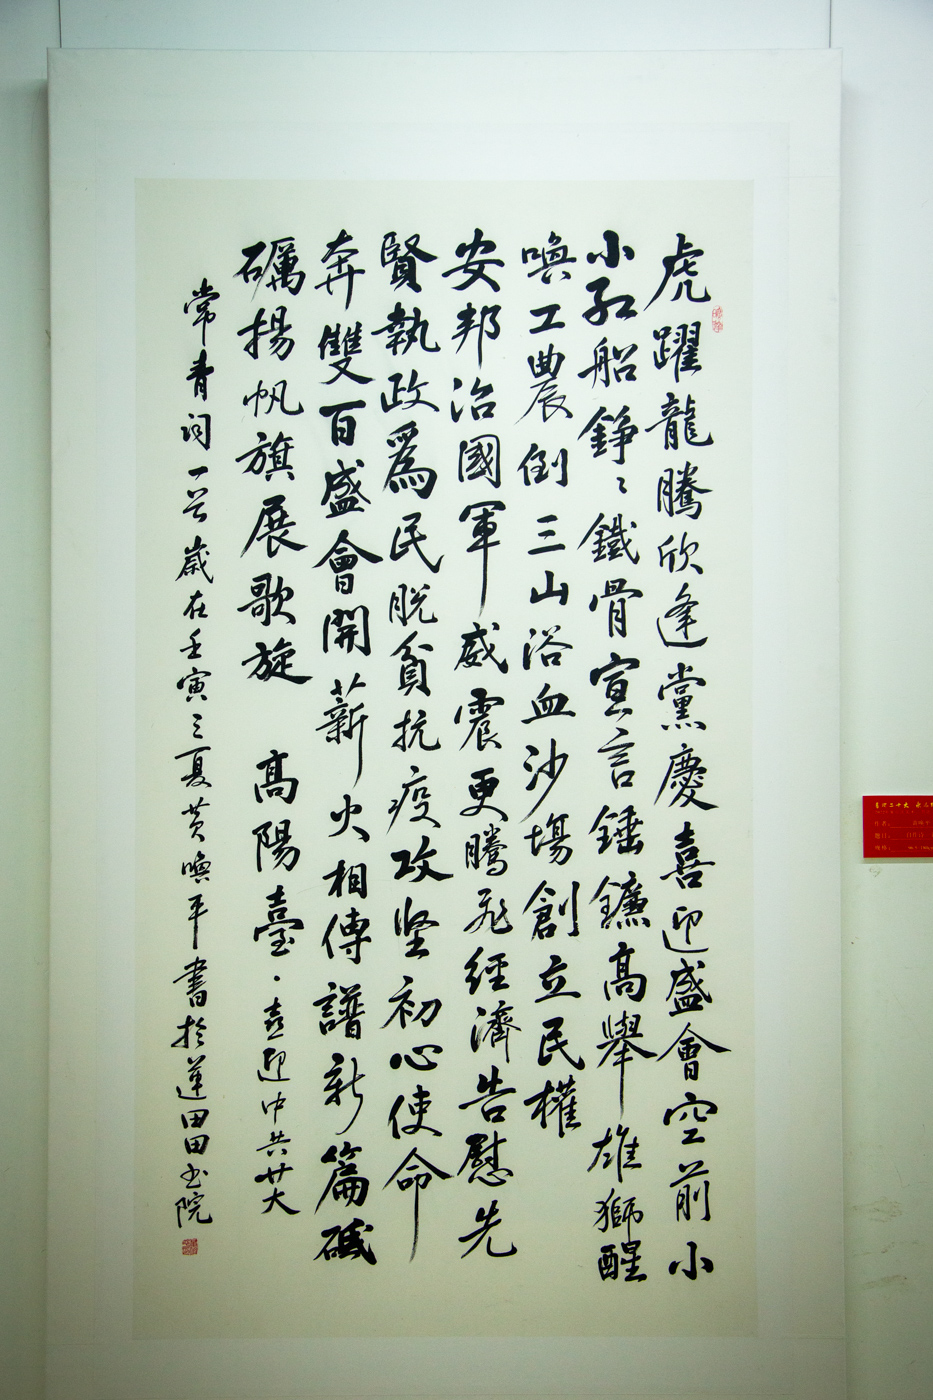 虎躍龍騰欣逢黨慶喜迎盛會空前小
小紅船錚〻鐵骨宣言錘鐮高舉雄獅醒
喚工農倒三山浴血沙場創立民權
安邦治國軍威震更騰飛經濟告慰先
賢執政爲民脫貧抗疫攻坚初心使命
奔雙百盛會開薪火相傳譜新篇砥
礪揚帆旗展歌旋 高陽臺·喜迎中共廿大
常青词一首歲在壬寅之夏黄喚平書於蓮田田书院